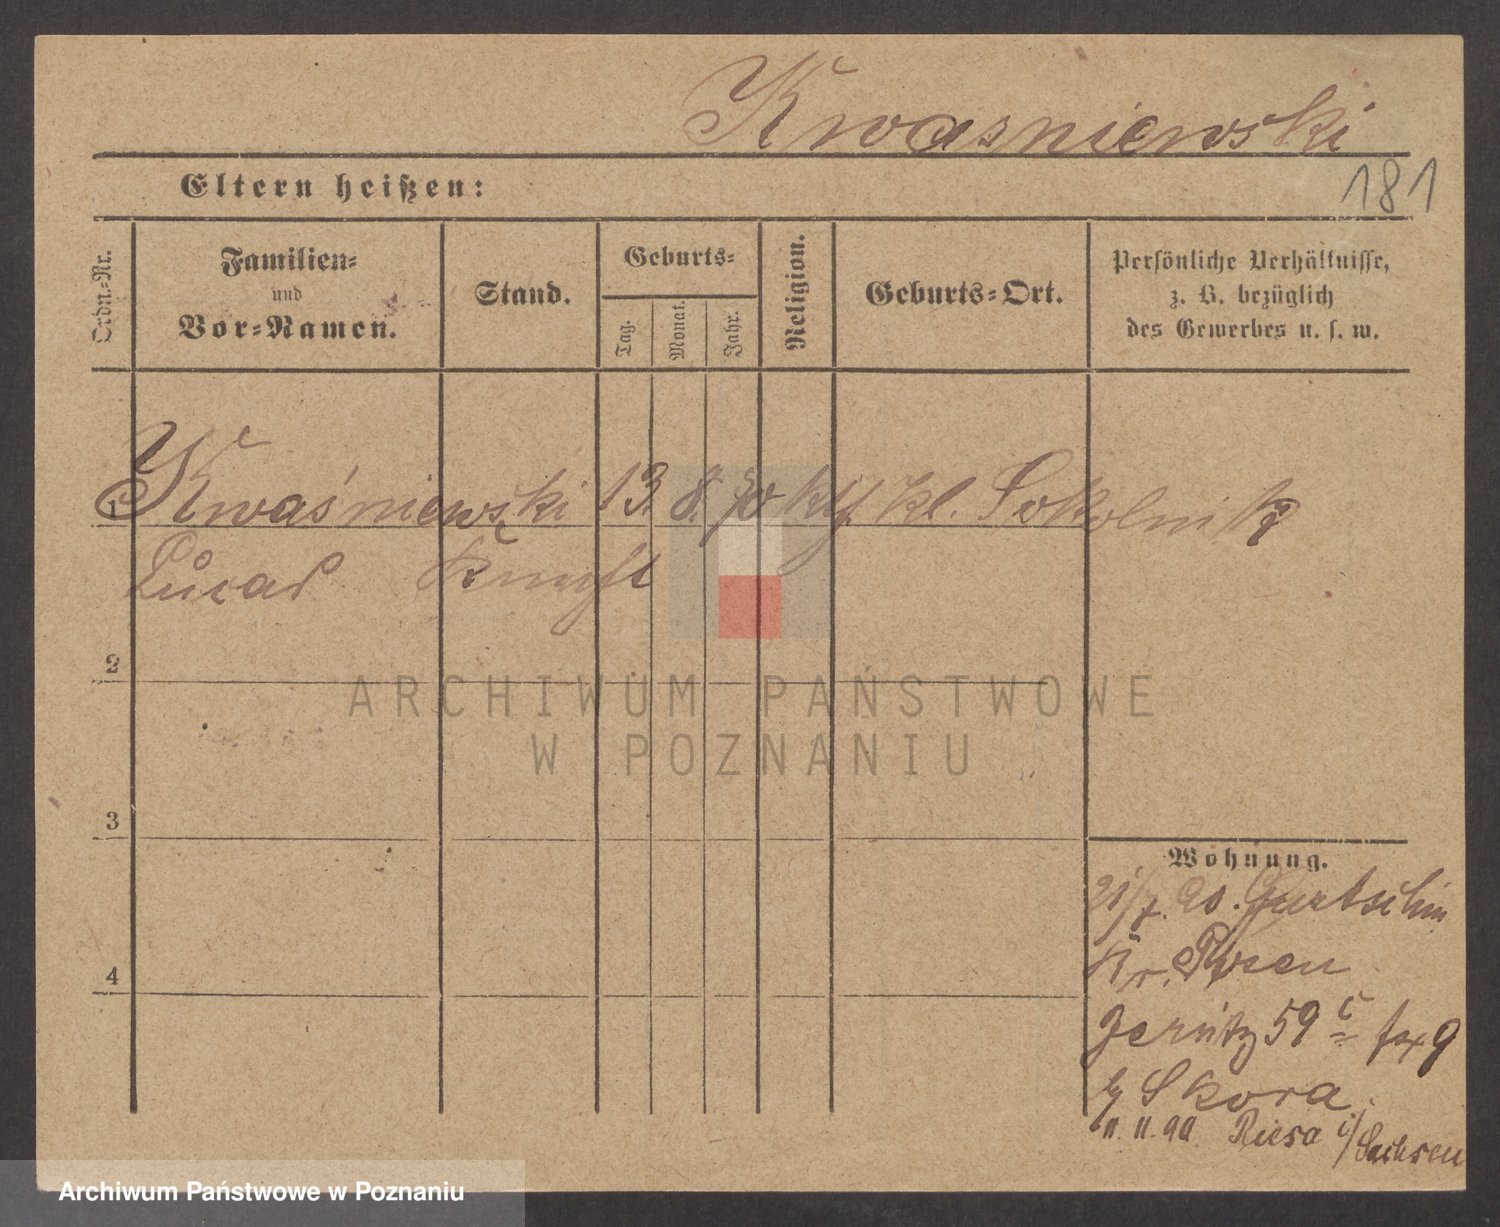 Kwasniewski
Eltern heißen:
181
Ordn.-Nr.
Familien-
und
Vor-Namen.
Stand.
Geburts-
Tag.
Monat.
Jahr.
Religion.
Geburts-Ort.
Persönliche Verhältnisse,
z. B. bezüglich
des Gewerbes u. s. w.
1 Kwaśniewski 13. 8. 70 kth. Kl. Sokolnik
Lucas Knecht
2
ARCHIWUM PAŃSTWOWE
W POZNANIU
3
Wohnung.
21/7. 90. Gurtschin
4
Kr. Posen
Jersitz 59
b/ Skora.
Riesa i/Sachsen
Archiwum Państwowe w Poznaniu